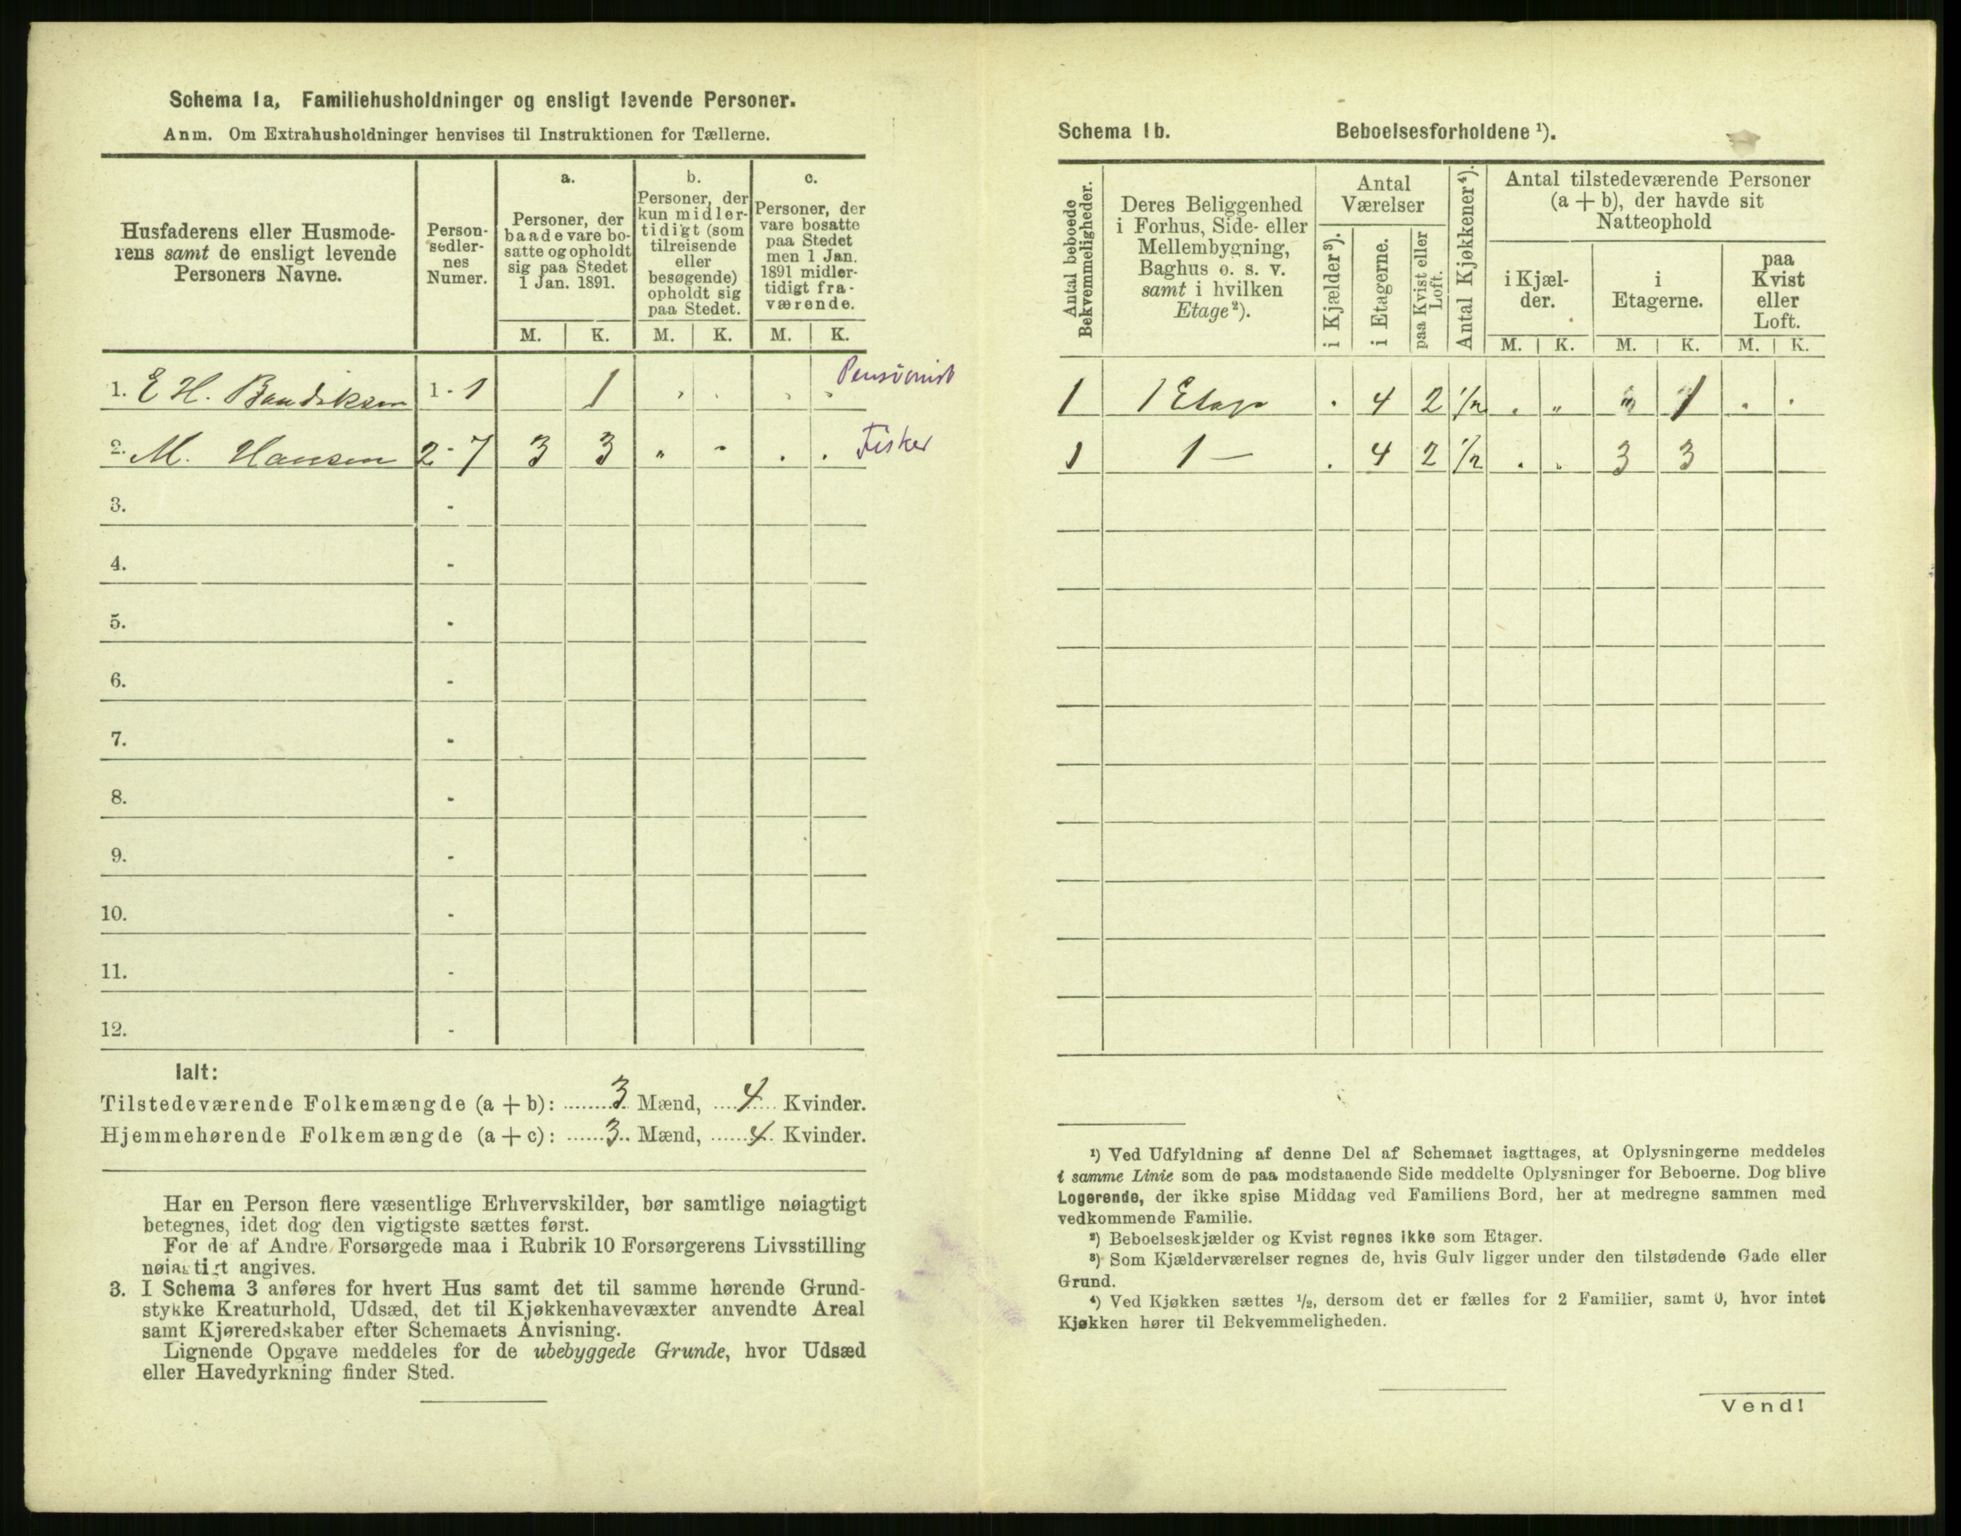 Schema 1a, Familiehusholdninger og ensligt levende Personer.
Anm. Om Extrahusholdninger henvises til Instruktionen for Tællerne.
Husfaderens eller Husmode-
rens samt de ensligt levende
Personers Navne.
Person-
sedler-
nes
Numer.
a.
Personer, der
baade vare bo-
satte og opholdt
sig paa Stedet
1 Jan. 1891.
M. K.
b.
Personer, der
kun midler-
tidigt (som
tilreisende
eller
besøgende)
opholdt sig
paa Stedet.
M. K.
c.
Personer, der
vare bosatte
paa Stedet
men 1 Jan.
1891 midler-
tidigt fra-
værende.
M. K.
1. E H. Bendiksen 1 - 1 1 " . . . Pensionist
2. M. Hansen 2 - 7 3 3 " - . . Fisker
3. -
4. -
5. -
6. -
7. -
8. -
9. -
10. -
11. -
12. -
Ialt:
Tilstedeværende Folkemængde (a + b): 3 Mænd, 4 Kvinder.
Hjemmehørende Folkemængde (a + c): 3 Mænd, 4 Kvinder.
Har en Person flere væsentlige Erhvervskilder, bør samtlige nøiagtigt
betegnes, idet dog den vigtigste sættes først.
For de af Andre Forsørgede maa i Rubrik 10 Forsørgerens Livsstilling
nøiagtigt angives.
3. I Schema 3 anføres for hvert Hus samt det til samme hørende Grund-
stykke Kreaturhold, Udsæd, det til Kjøkkenhavevæxter anvendte Areal
samt Kjøreredskaber efter Schemaets Anvisning.
Lignende Opgave meddeles for de ubebyggede Grunde, hvor Udsæd
eller Havedyrkning finder Sted.
Schema 1b. Beboelsesforholdene ¹).
Antal beboede
Bekvemmeligheder.
Deres Beliggenhed
i Forhus, Side- eller
Mellembygning,
Baghus o. s. v.
samt i hvilken
Etage²).
Antal
Værelser
i Kjælder³).
i Etagerne.
paa Kvist eller
Loft.
Antal Kjøkkener⁴).
Antal tilstedeværende Personer
(a + b), der havde sit
Natteophold
i Kjæl-
der.
i
Etagerne.
paa
Kvist
eller
Loft.
M. K. M. K. M. K.
1 1 Etage . 4 2 1/2 . " " 1 . .
1 1 — . 4 2 1/2 . . 3 3
¹) Ved Udfyldning af denne Del af Schemaet iagttages, at Oplysningerne meddeles
i samme Linie som de paa modstaaende Side meddelte Oplysninger for Beboerne. Dog blive
Logerende, der ikke spise Middag ved Familiens Bord, her at medregne sammen med
vedkommende Familie.
²) Beboelseskjælder og Kvist regnes ikke som Etager.
³) Som Kjælderværelser regnes de, hvis Gulv ligger under den tilstødende Gade eller
Grund.
⁴) Ved Kjøkken sættes ¹/₂, dersom det er fælles for 2 Familier, samt 0, hvor intet
Kjøkken hører til Bekvemmeligheden.
Vend!